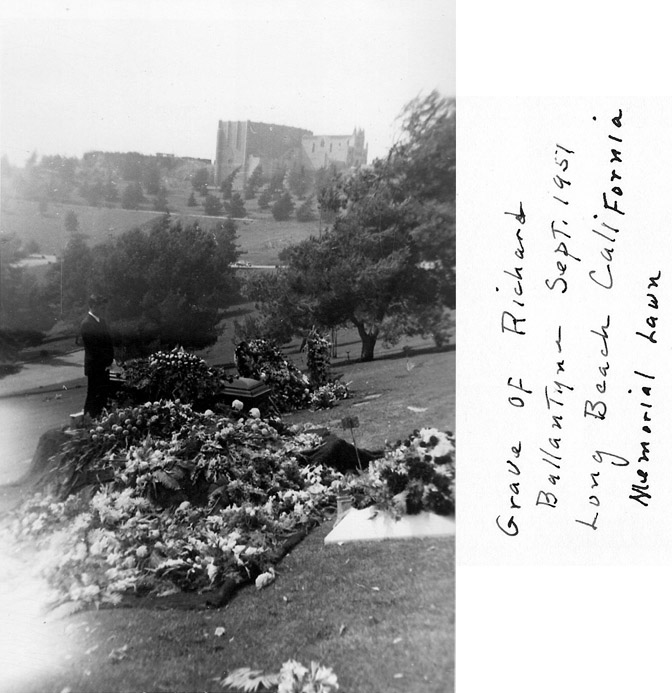 Grave of Richard
Ballantyne Sept. 1951
Long Beach California
Memorial Lawn